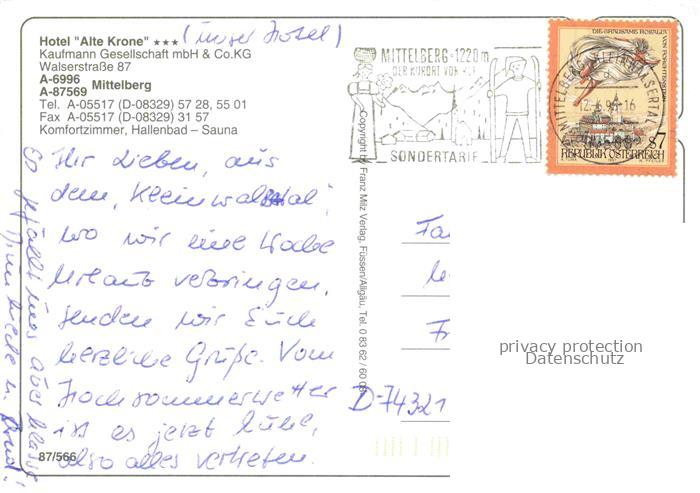 Hotel "Alte Krone" ★★★ (unser Hotel)
Kaufmann Gesellschaft mbH & Co.KG
Walserstraße 87
A-6996
A-87569 Mittelberg
Tel. A-05517 (D-08329) 57 28, 55 01
Fax A-05517 (D-08329) 31 57
Komfortzimmer, Hallenbad – Sauna
Ihr Lieben, aus
dem, Kleinwalstal,
wo wir eine Woche
Urlaub verbringen,
senden wir Euch
herzliche Grüße. Vom
Hochsommerwetter
ist es jetzt kühl,
also alles vertreten.
Es gefällt uns aber klasse
87/566
Copyright by Franz Milz Verlag, Füssen/Allgäu, Tel. 0 83 62 / 60 0
MITTELBERG · 1220 m
DER KURORT VON
SONDERTARIF
MITTELBERG, KLEINWALSERTAL
DIE GRAUSAME ROSALIA
VON FORCHTENSTEIN
S7
REPUBLIK ÖSTERREICH
Fa
Fr
D-74321
privacy protection
Datenschutz